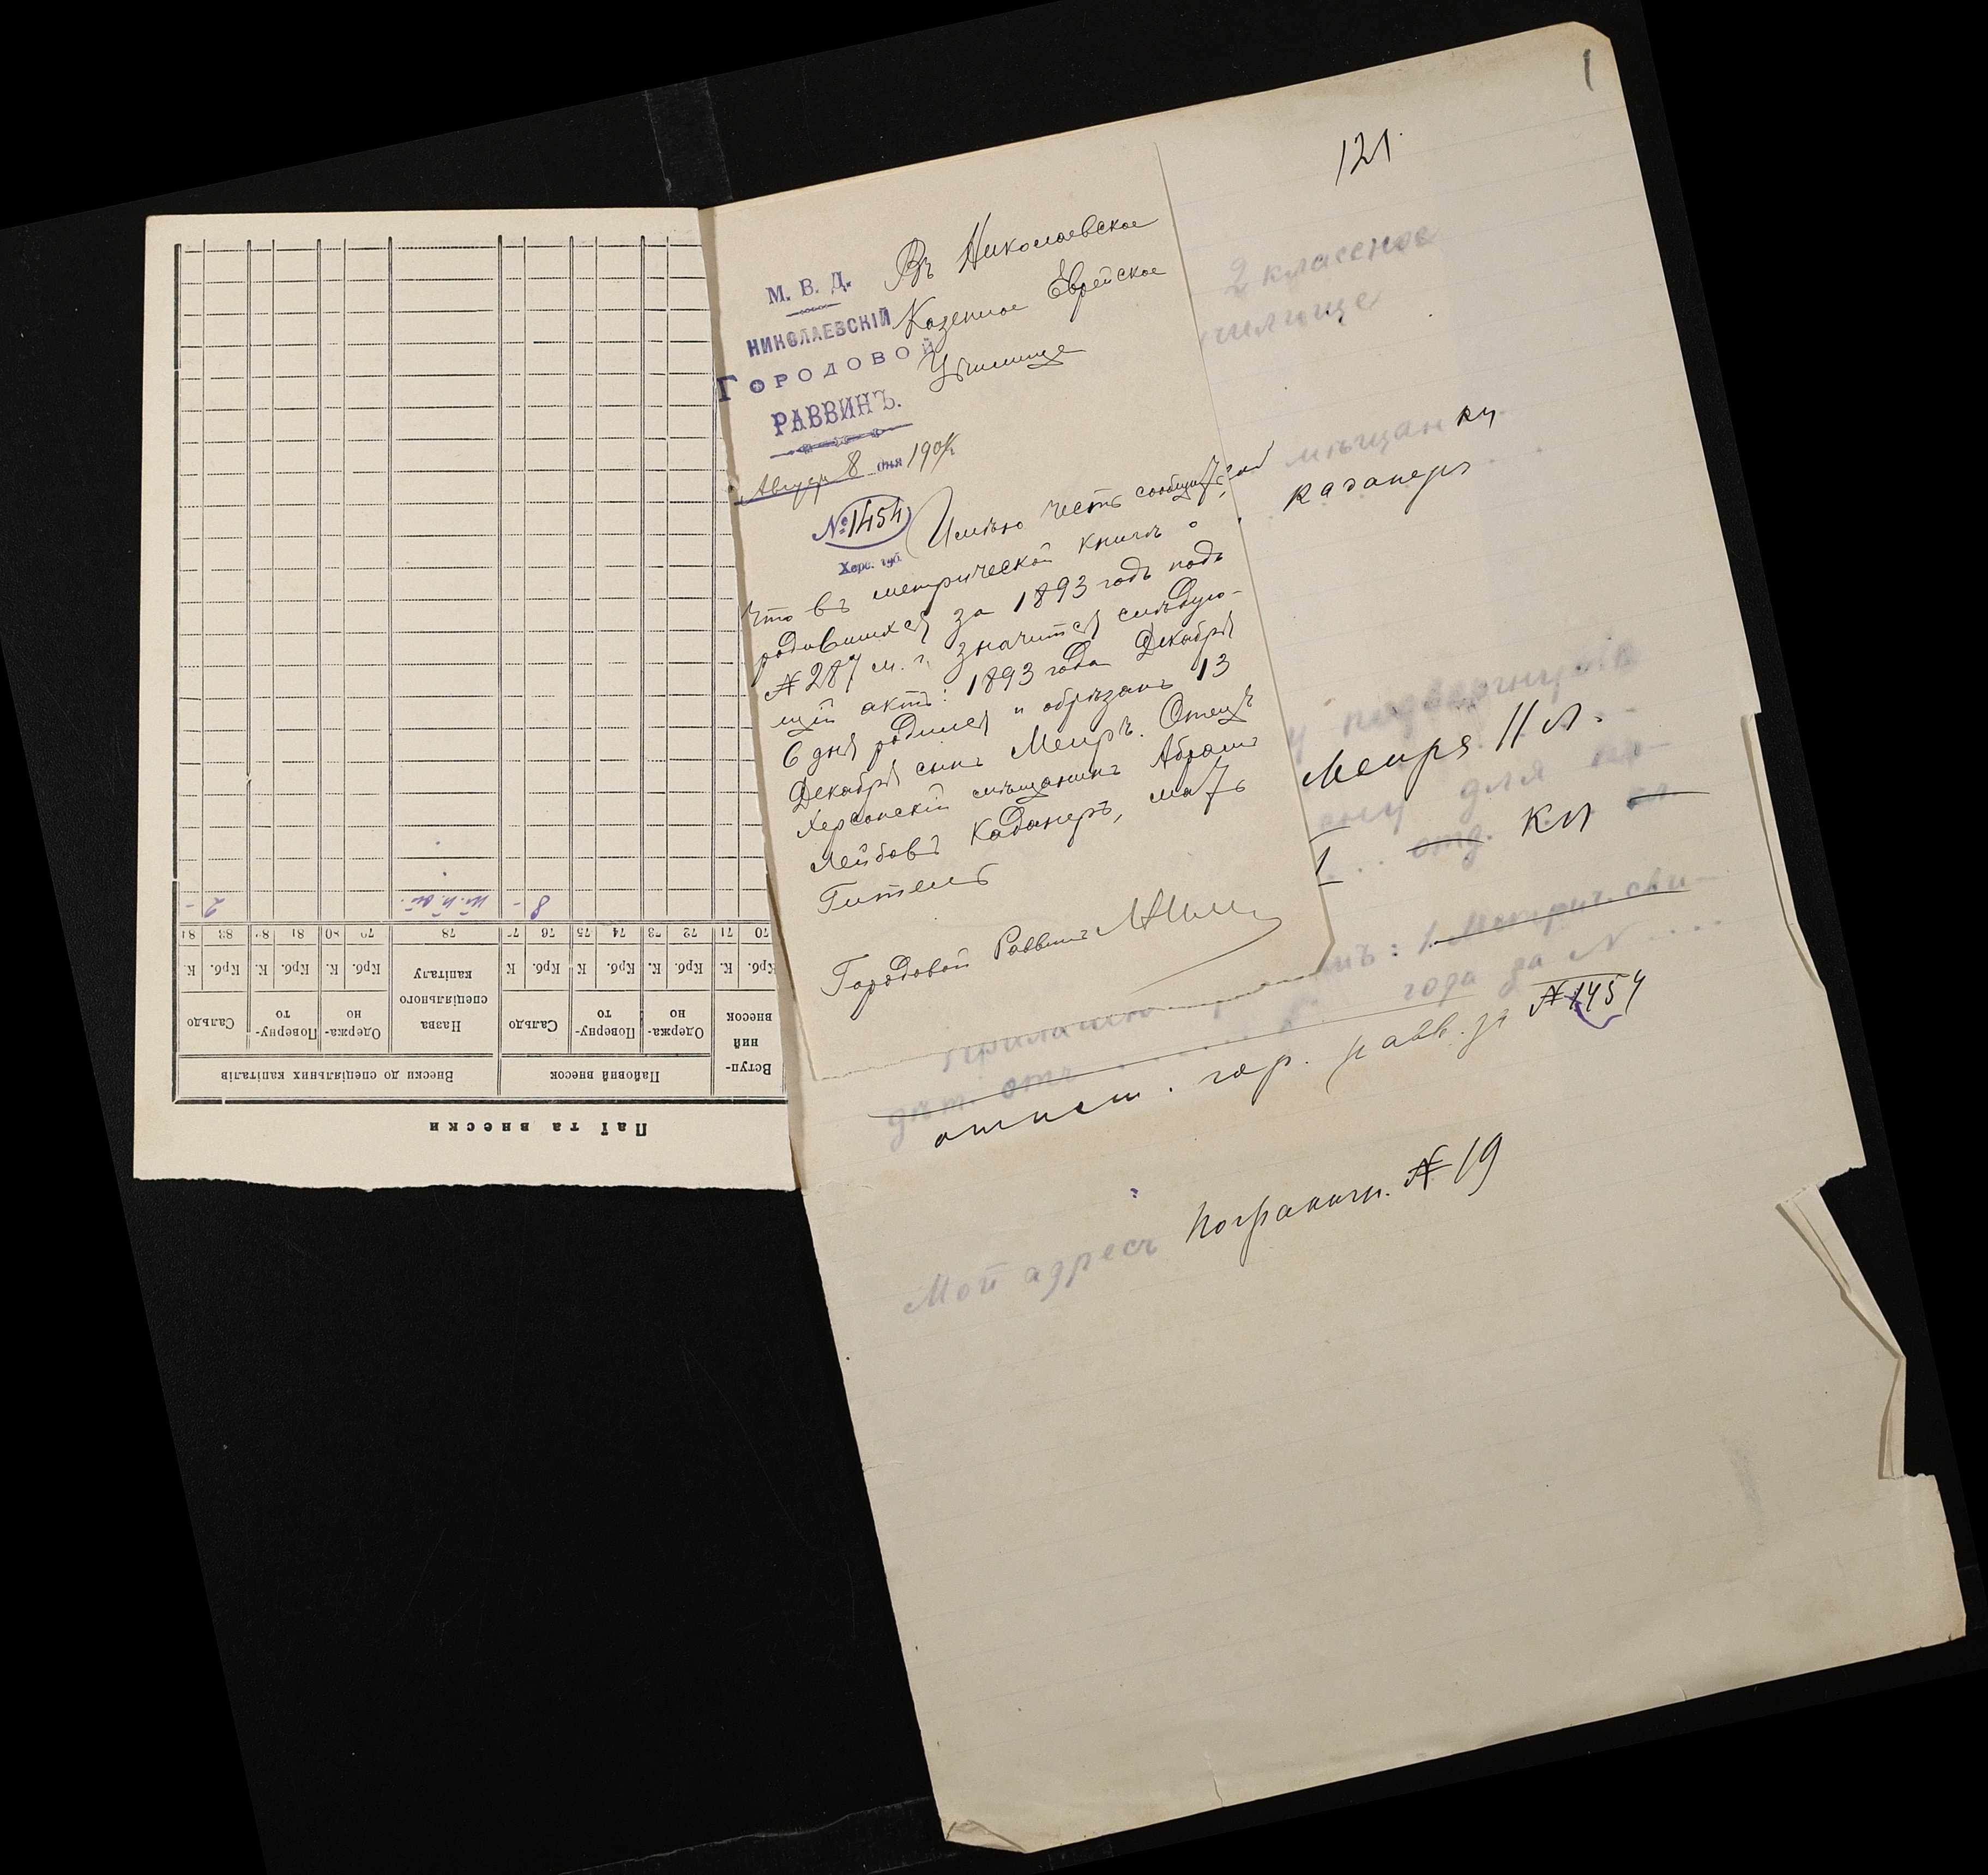 1
121.
М. В. Д.
НИКОЛАЕВСКІЙ
ГОРОДОВОЙ
РАВВИНЪ.
8 дня 1904
№ 1454
Херс. губ.
Въ Николаевское
Казенное Еврейское
Училище
Имѣю честь сообщить,
что въ метрической книгѣ о
родившихся за 1893 годъ подъ
№ 287 м. г. значится слѣдую-
щій актъ: 1893 года Декабря
6 дня родился и обрѣзанъ 13
Декабря сынъ Меиръ. Отецъ
Херсонскій мѣщанинъ Абрам
Лейбовъ Каданеръ, мать
Гитель
Городовой Раввинъ
2 классное
училище
мѣщанки
Каданеръ
подвергнуть
Меира 11 л.
для по-
I отд. кл
: 1. Метрич. сви-
дѣт. отъ года за №
отнош. гор. равв. за № 1454
Мой адресъ Погранич. № 19
Паї та внески
Вступ-
ний
внесок
Пайовий внесок
Внески до спеціяльних капіталів
Одержа-
но
Поверну-
то
Сальдо
Назва
спеціяльного
капіталу
Одержа-
но
Поверну-
то
Сальдо
Крб. К. Крб. К. Крб. К Крб. К Крб. К. Крб. К. Крб. К
70 71 72 73 74 75 76 77 78 79 80 81 82 83 84
8 -
2 -